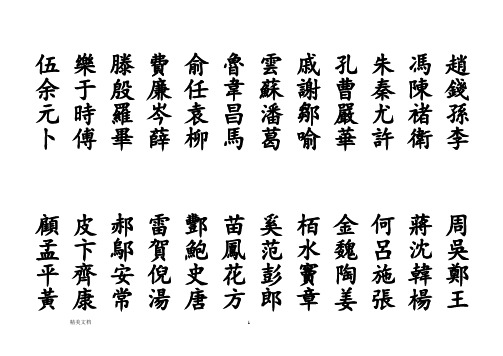 趙錢孫李
周吳鄭王
馮陳褚衛
蔣沈韓楊
朱秦尤許
何呂施張
孔曹嚴華
金魏陶姜
戚謝鄒喻
栢水竇章
雲蘇潘葛
奚范彭郎
魯韋昌馬
苗鳳花方
俞任袁柳
酆鮑史唐
費廉岑薛
雷賀倪湯
滕殷羅畢
郝鄔安常
樂于時傅
皮卞齊康
伍余元卜
顧孟平黃
精美文档
1